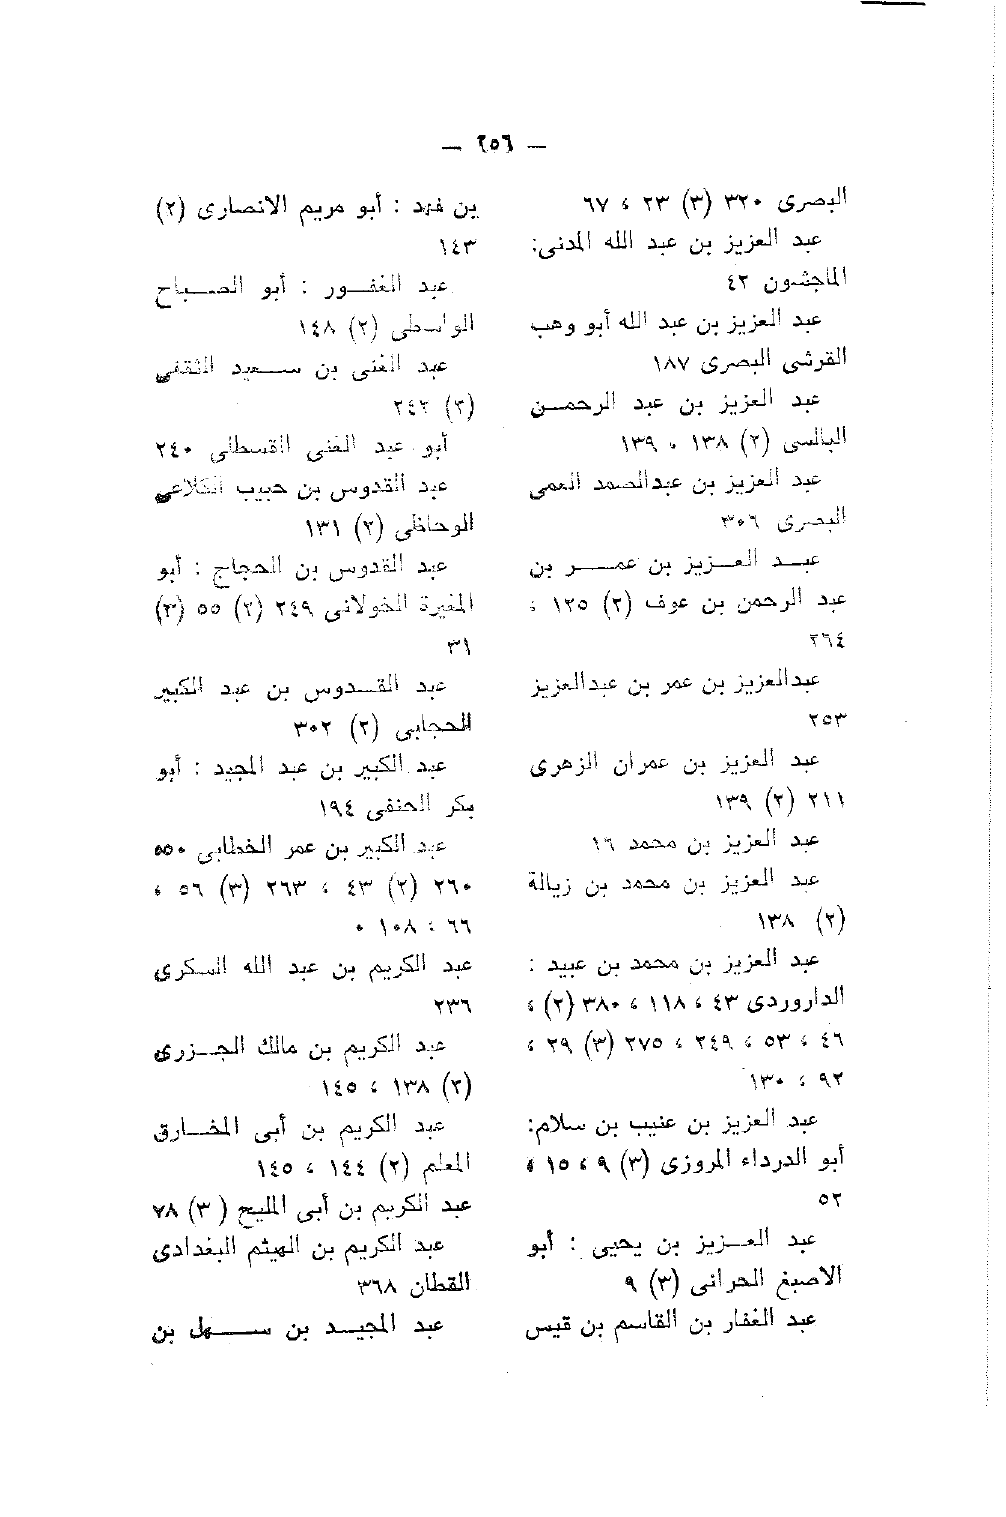 — ٢٥٦ —
البصرى ٣٢٠ (٣) ٢٣ ، ٦٧
عبد العزيز بن عبد الله المدنى:
الماجشون ٤٢
عبد العزيز بن عبد الله أبو وهب
القرشى البصرى ١٨٧
عبد العزيز بن عبد الرحمـن
البالسى (٢) ١٣٨ ، ١٣٩
عبد العزيز بن عبدالصمد العمى
البصرى ٣٠٦
عبـد العـزيز بن عمـر بن
عبد الرحمن بن عوف (٢) ١٢٥ ،
٢٦٤
عبدالعزيز بن عمر بن عبدالعزيز
٢٥٣
عبد العزيز بن عمران الزهرى
٢١١ (٢) ١٣٩
عبد العزيز بن محمد ١٦
عبد العزيز بن محمد بن زبالة
(٢) ١٣٨
عبد العزيز بن محمد بن عبيد :
الداروردى ٤٣ ، ١١٨ ، ٣٨٠ (٢) ،
٤٦ ، ٥٣ ، ٢٤٩ ، ٢٧٥ (٣) ٢٩ ،
٩٢ ، ١٣٠
عبد العزيز بن عنيب بن سلام:
أبو الدرداء المروزى (٣) ٩ ، ١٥ ،
٥٢
عبد العـزيز بن يحيى : أبو
الاصبغ الحرانى (٣) ٩
عبد الغفار بن القاسم بن قيس
بن فهد : أبو مريم الانصارى (٢)
١٤٣
عبد الغفـور : أبو الصـباح
الواسطى (٢) ١٤٨
عبد الغنى بن سـعيد الثقفى
(٢) ٢٤٢
أبو عبد الغنى القسطلى ٢٤٠
عبد القدوس بن حبيب الكلاعى
الوحاظى (٢) ١٣١
عبد القدوس بن الحجاج : أبو
المغيرة الخولانى ٢٤٩ (٢) ٥٥ (٣)
٣١
عبد القـدوس بن عبد الكبير
الحجابى (٢) ٣٠٢
عبد الكبير بن عبد المجيد : أبو
بكر الحنفى ١٩٤
عبد الكبير بن عمر الخطابى ٥٥٠
٢٦٠ (٢) ٤٣ ، ٢٦٣ (٣) ٥٦ ،
٦٦ ، ١٠٨ ٠
عبد الكريم بن عبد الله السكرى
٢٣٦
عبد الكريم بن مالك الجـزرى
(٢) ١٣٨ ، ١٤٥
عبد الكريم بن أبى المخـارق
المعلم (٢) ١٤٤ ، ١٤٥
عبد الكريم بن أبى المليح ( ٣) ٧٨
عبد الكريم بن الهيثم البغدادى
القطان ٣٦٨
عبد المجيـد بن سـهل بن